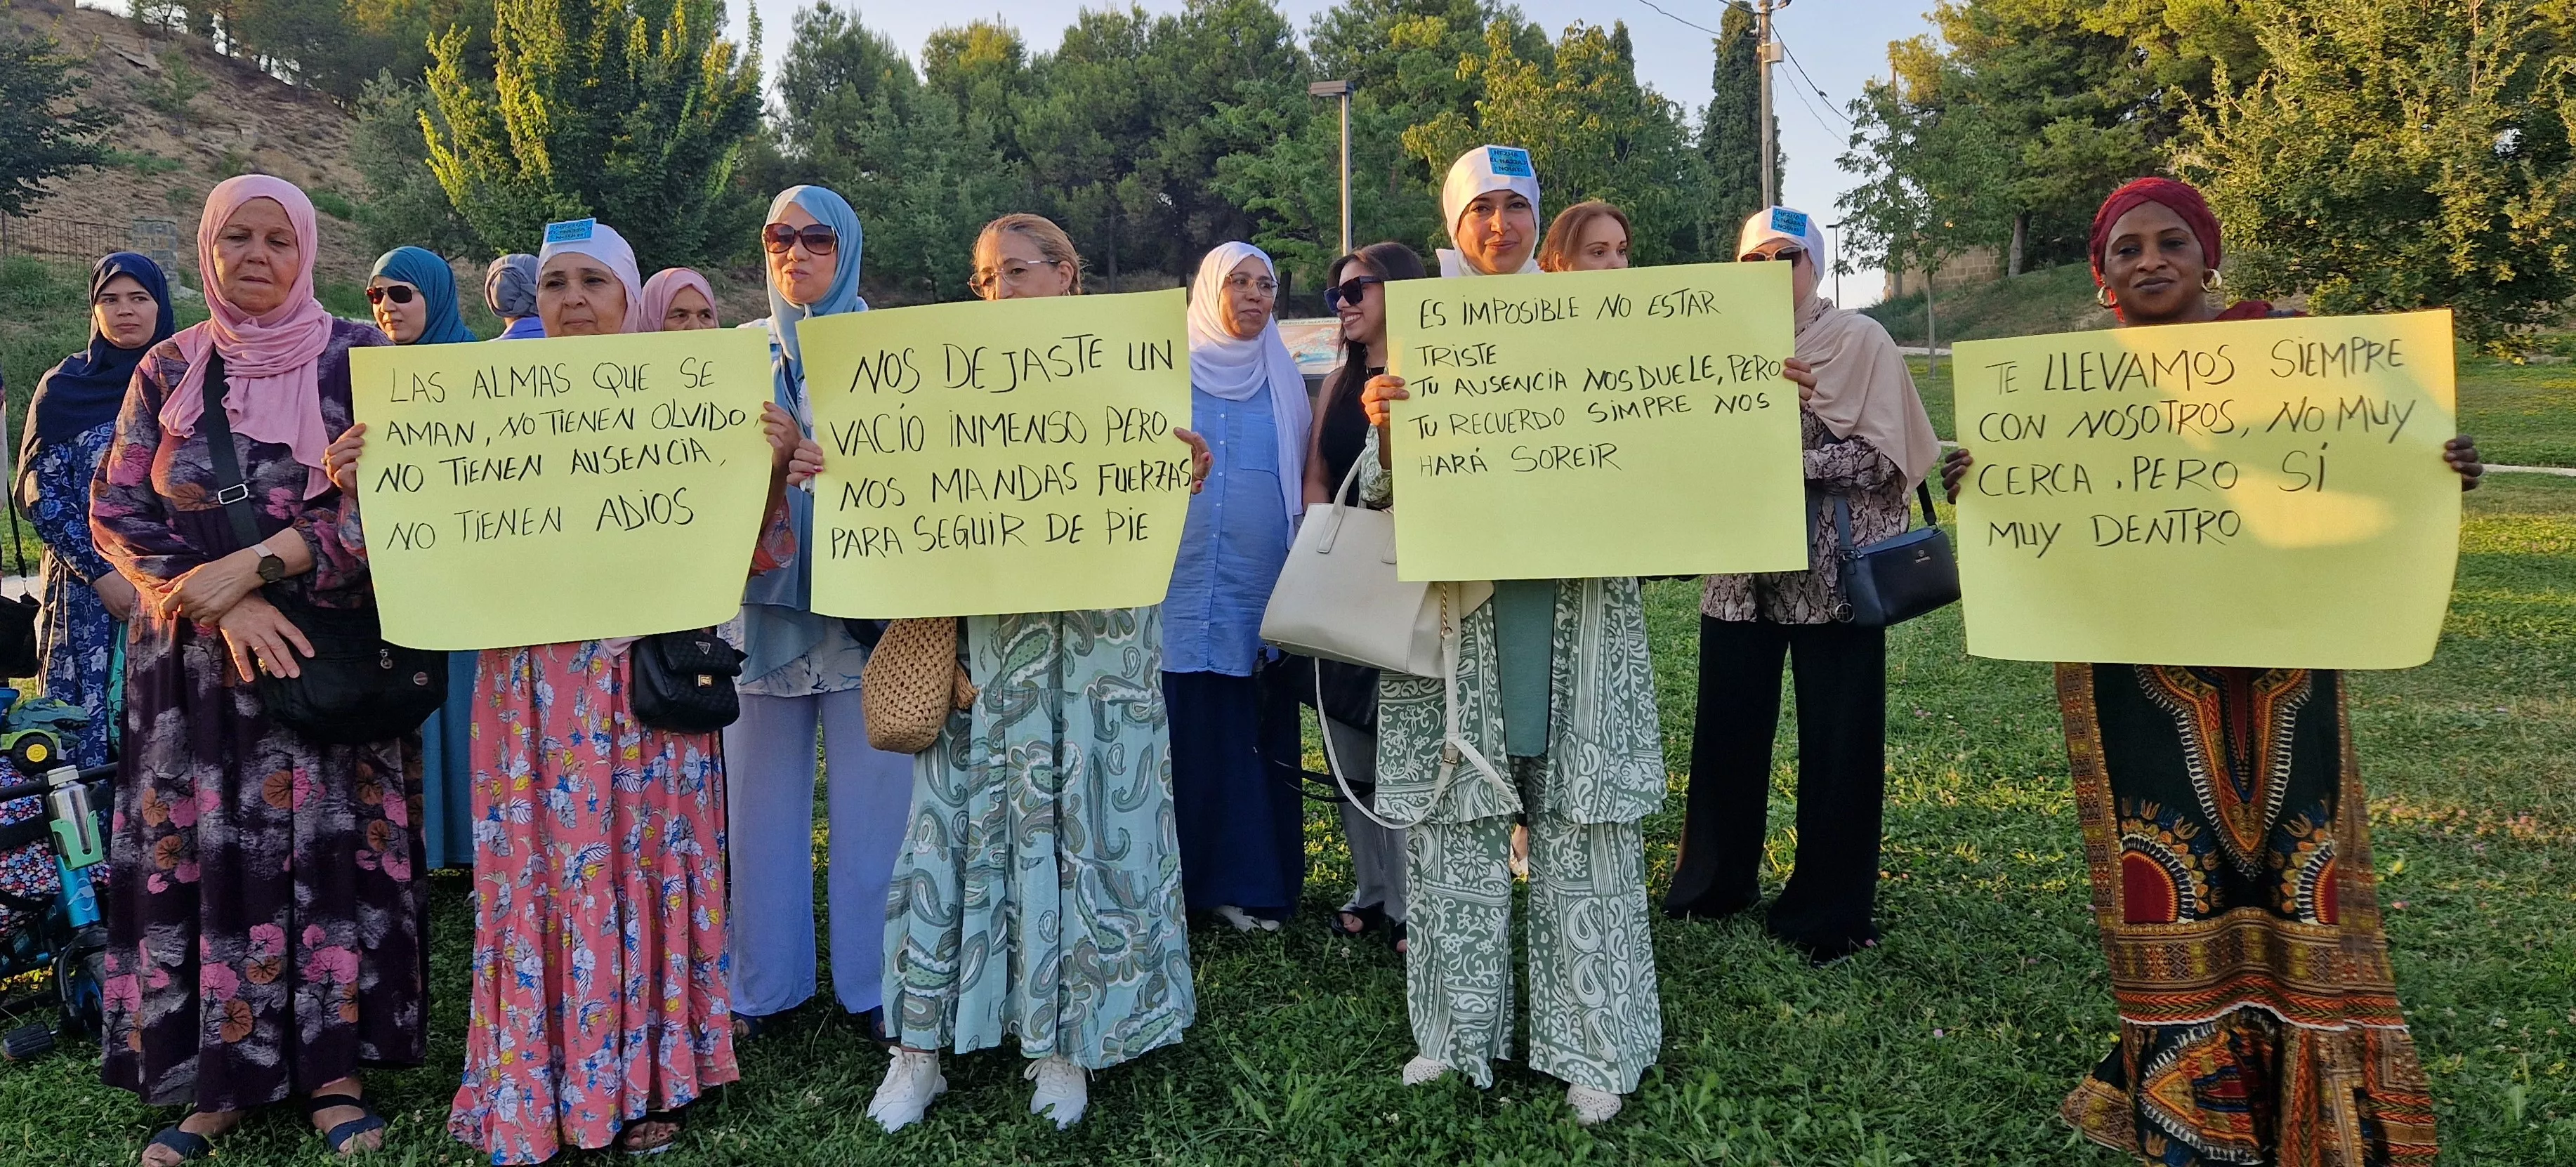 LAS ALMAS QUE SE
AMAN, NO TIENEN OLVIDO,
NO TIENEN AUSENCIA,
NO TIENEN ADIOS
NOS DEJASTE UN
VACÍO INMENSO PERO
NOS MANDAS FUERZAS
PARA SEGUIR DE PIE
ES IMPOSIBLE NO ESTAR
TRISTE
TU AUSENCIA NOS DUELE, PERO
TU RECUERDO SIMPRE NOS
HARÁ SOREIR
TE LLEVAMOS SIEMPRE
CON NOSOTROS, NO MUY
CERCA, PERO SÍ
MUY DENTRO